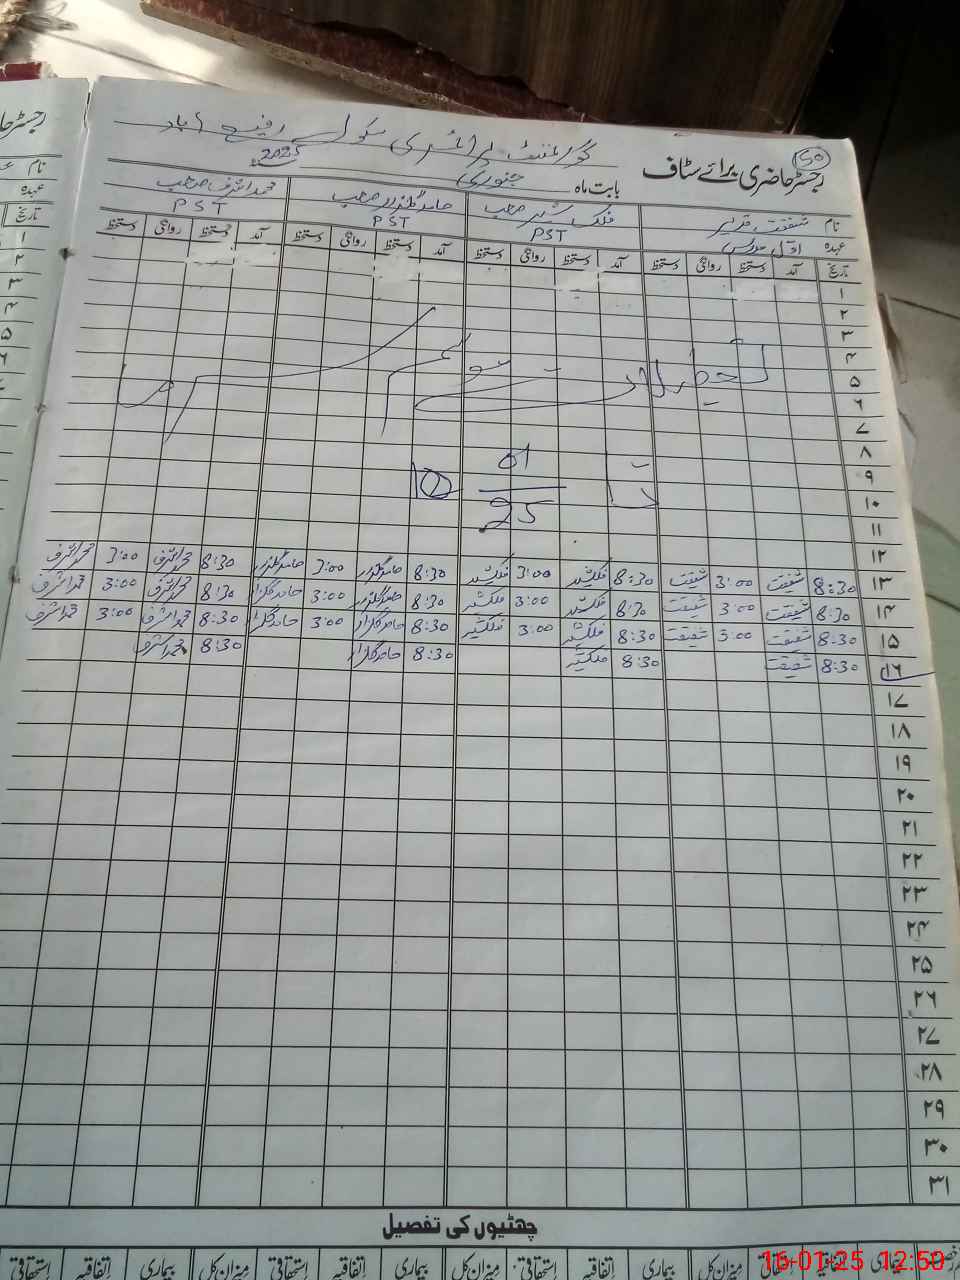 رجسٹر حاضری برائے سٹاف
50
گورنمنٹ پرائمری سکول رفیع آباد
بابت ماہ جنوری 2025ء
نام شفقت قدیر فلک شیر صاحب حامد گلزار صاحب محمد اشرف صاحب
عہدہ اول مدرس PST PST PST
تاریخ آمد دستخط روانگی دستخط آمد دستخط روانگی دستخط آمد دستخط روانگی دستخط آمد دستخط روانگی دستخط
۱
۲
۳
۴
تعطیلات موسم سرما
۵
۶
۷
۸
۹
تا 10 01 25
۱۰
۱۱
۱۲
۱۳ 8:30 شفقت 3:00 شفقت 8:30 فلک شیر 3:00 فلک شیر 8:30 حامد گلزار 3:00 حامد گلزار 8:30 محمد اشرف 3:00 محمد اشرف
۱۴ 8:30 شفقت 3:00 شفقت 8:30 فلک شیر 3:00 فلک شیر 8:30 حامد گلزار 3:00 حامد گلزار 8:30 محمد اشرف 3:00 محمد اشرف
۱۵ 8:30 شفقت 3:00 شفقت 8:30 فلک شیر 3:00 فلک شیر 8:30 حامد گلزار 3:00 حامد گلزار 8:30 محمد اشرف 3:00 محمد اشرف
۱۶ 8:30 شفقت 8:30 فلک شیر 8:30 حامد گلزار 8:30 محمد اشرف
۱۷
۱۸
۱۹
۲۰
۲۱
۲۲
۲۳
۲۴
۲۵
۲۶
۲۷
۲۸
۲۹
۳۰
۳۱
چھٹیوں کی تفصیل
اتفاقیہ بیماری میزان کل استحقاقی اتفاقیہ بیماری میزان کل استحقاقی اتفاقیہ بیماری میزان کل استحقاقی
16-01-25 12:50